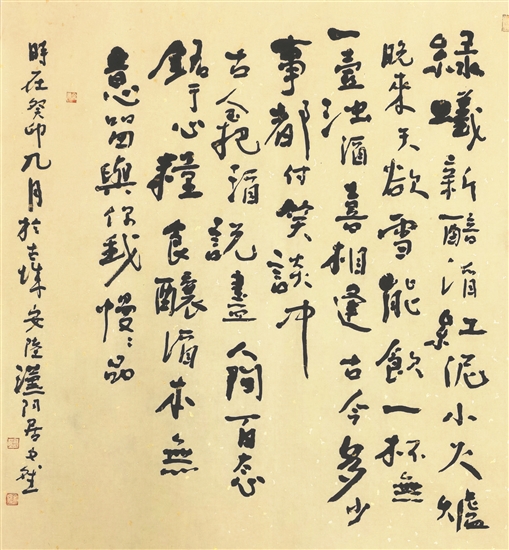 綠蟻新醅酒紅泥小火爐
晚來天欲雪能飲一杯無
一壺浊酒喜相逢古今多少
事都付笑談中
古今把酒說盡人間百态
銘于心糧食釀酒本無
意留與你我慢〻品
時在癸卯九月於古城安陸